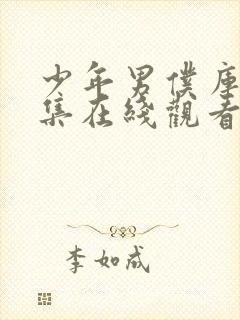 少年男僕庫
集在綫觀看
李如成